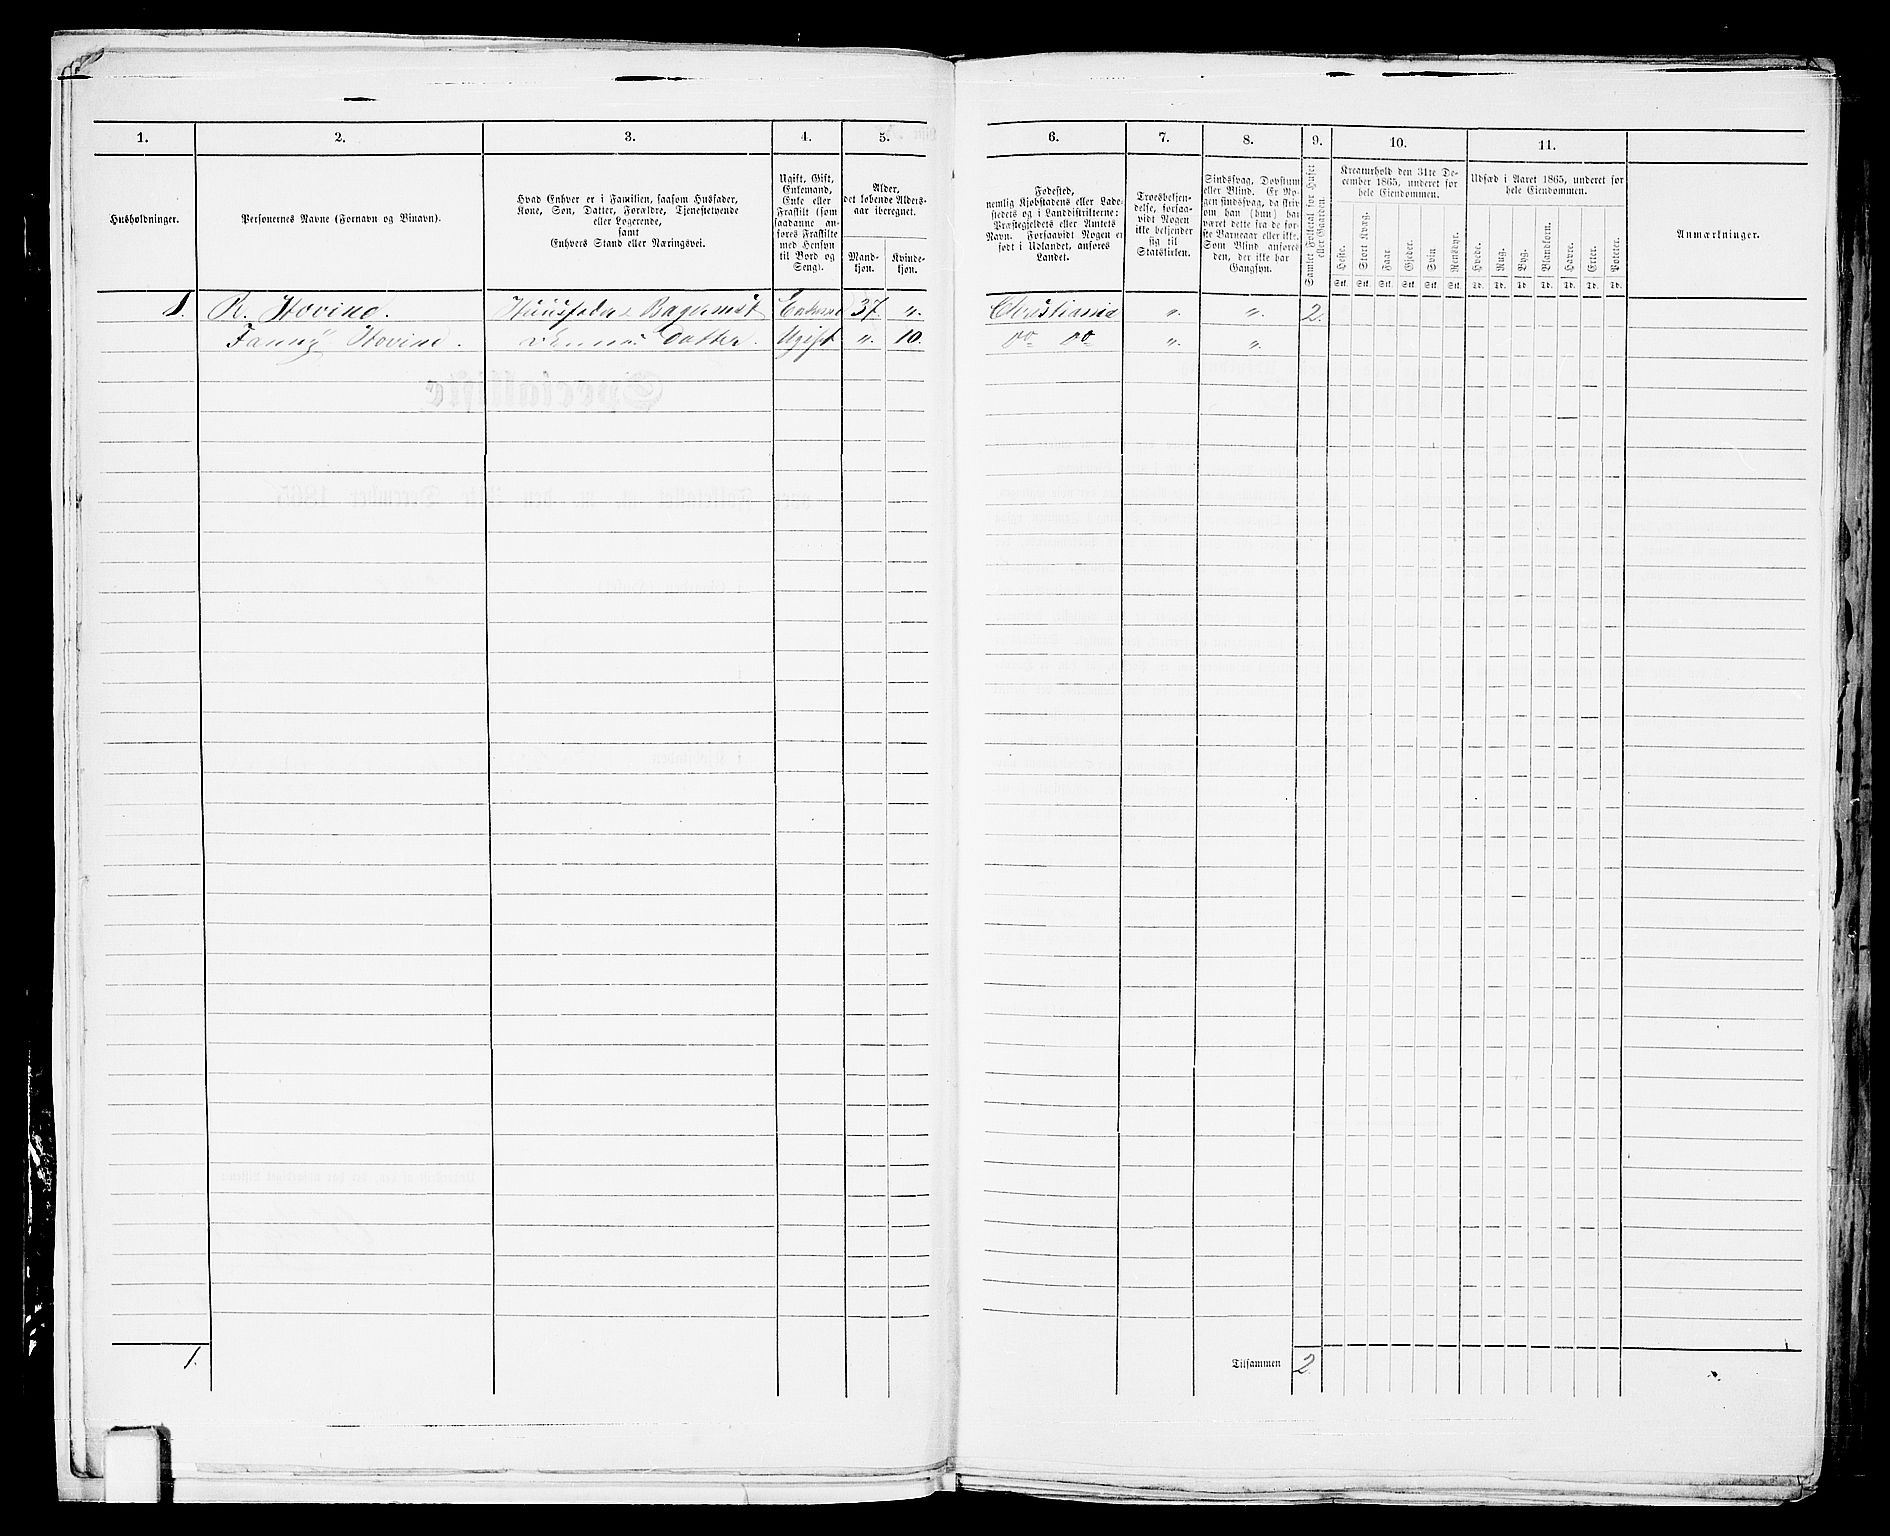 1.	2.	3.	4.	5.	6.	7.	8.	9.	10.	11.
Husholdninger.
Personernes Navne (Fornavn og Binavn).
Hvad Enhver er i Familien, saasom Husfader,
Kone, Søn, Datter, Forældre, Tjenestetyende
eller Logerende,
samt
Enhvers Stand eller Næringsvei.
Ugift, Gift,
Enkemand,
Enke eller
Fraskilt (som
saadanne an-
føres Fraskilte
med Hensyn
til Bord og
Seng).
Alder,
det løbende Alders-
aar iberegnet.
Mand-
kjøn.
Kvinde-
kjøn.
Fødested,
nemlig Kjøbstadens eller Lade-
stedets og i Landdistrikterne:
Præstegjeldets eller Amtets
Navn. Forsaavidt Nogen er
født i Udlandet, anføres
Landet.
Troesbekjen-
delse, forsaa-
vidt Nogen
ikke bekjender
sig til
Statskirken.
Sindssvag, Døvstum
eller Blind. Er No-
gen sindssvag, da skriv
om han (hun) har
været dette fra de før-
ste Barneaar eller ikke.
Som Blind anføres
den, der ikke har
Gangsyn.
Samlet Folketal for Huset
eller Gaarden.
Kreaturhold den 31te De-
cember 1865, underet for
hele Eiendommen.
Heste.	Stort Kvæg.	Faar	Gjeder.	Svin	Rensdyr.
Stk.	Stk.	Stk.	Stk.	Stk.	Stk.
Udsæd i Aaret 1865, underet for
hele Eiendommen.
Hvede.	Rug.	Byg.	Blandkorn.	Havre.	Erter.	Poteter.
Td.	Td.	Td.	Td.	Td.	Td.	Td.
Anmærkninger.
1.	R. Hovind.	Huusfader Bagermst	37	"	Christiania	"	"	2.
Fanny Hovind.	Datter.	Ugift	"	10.	do do	"	"
1.	Tilsammen	2